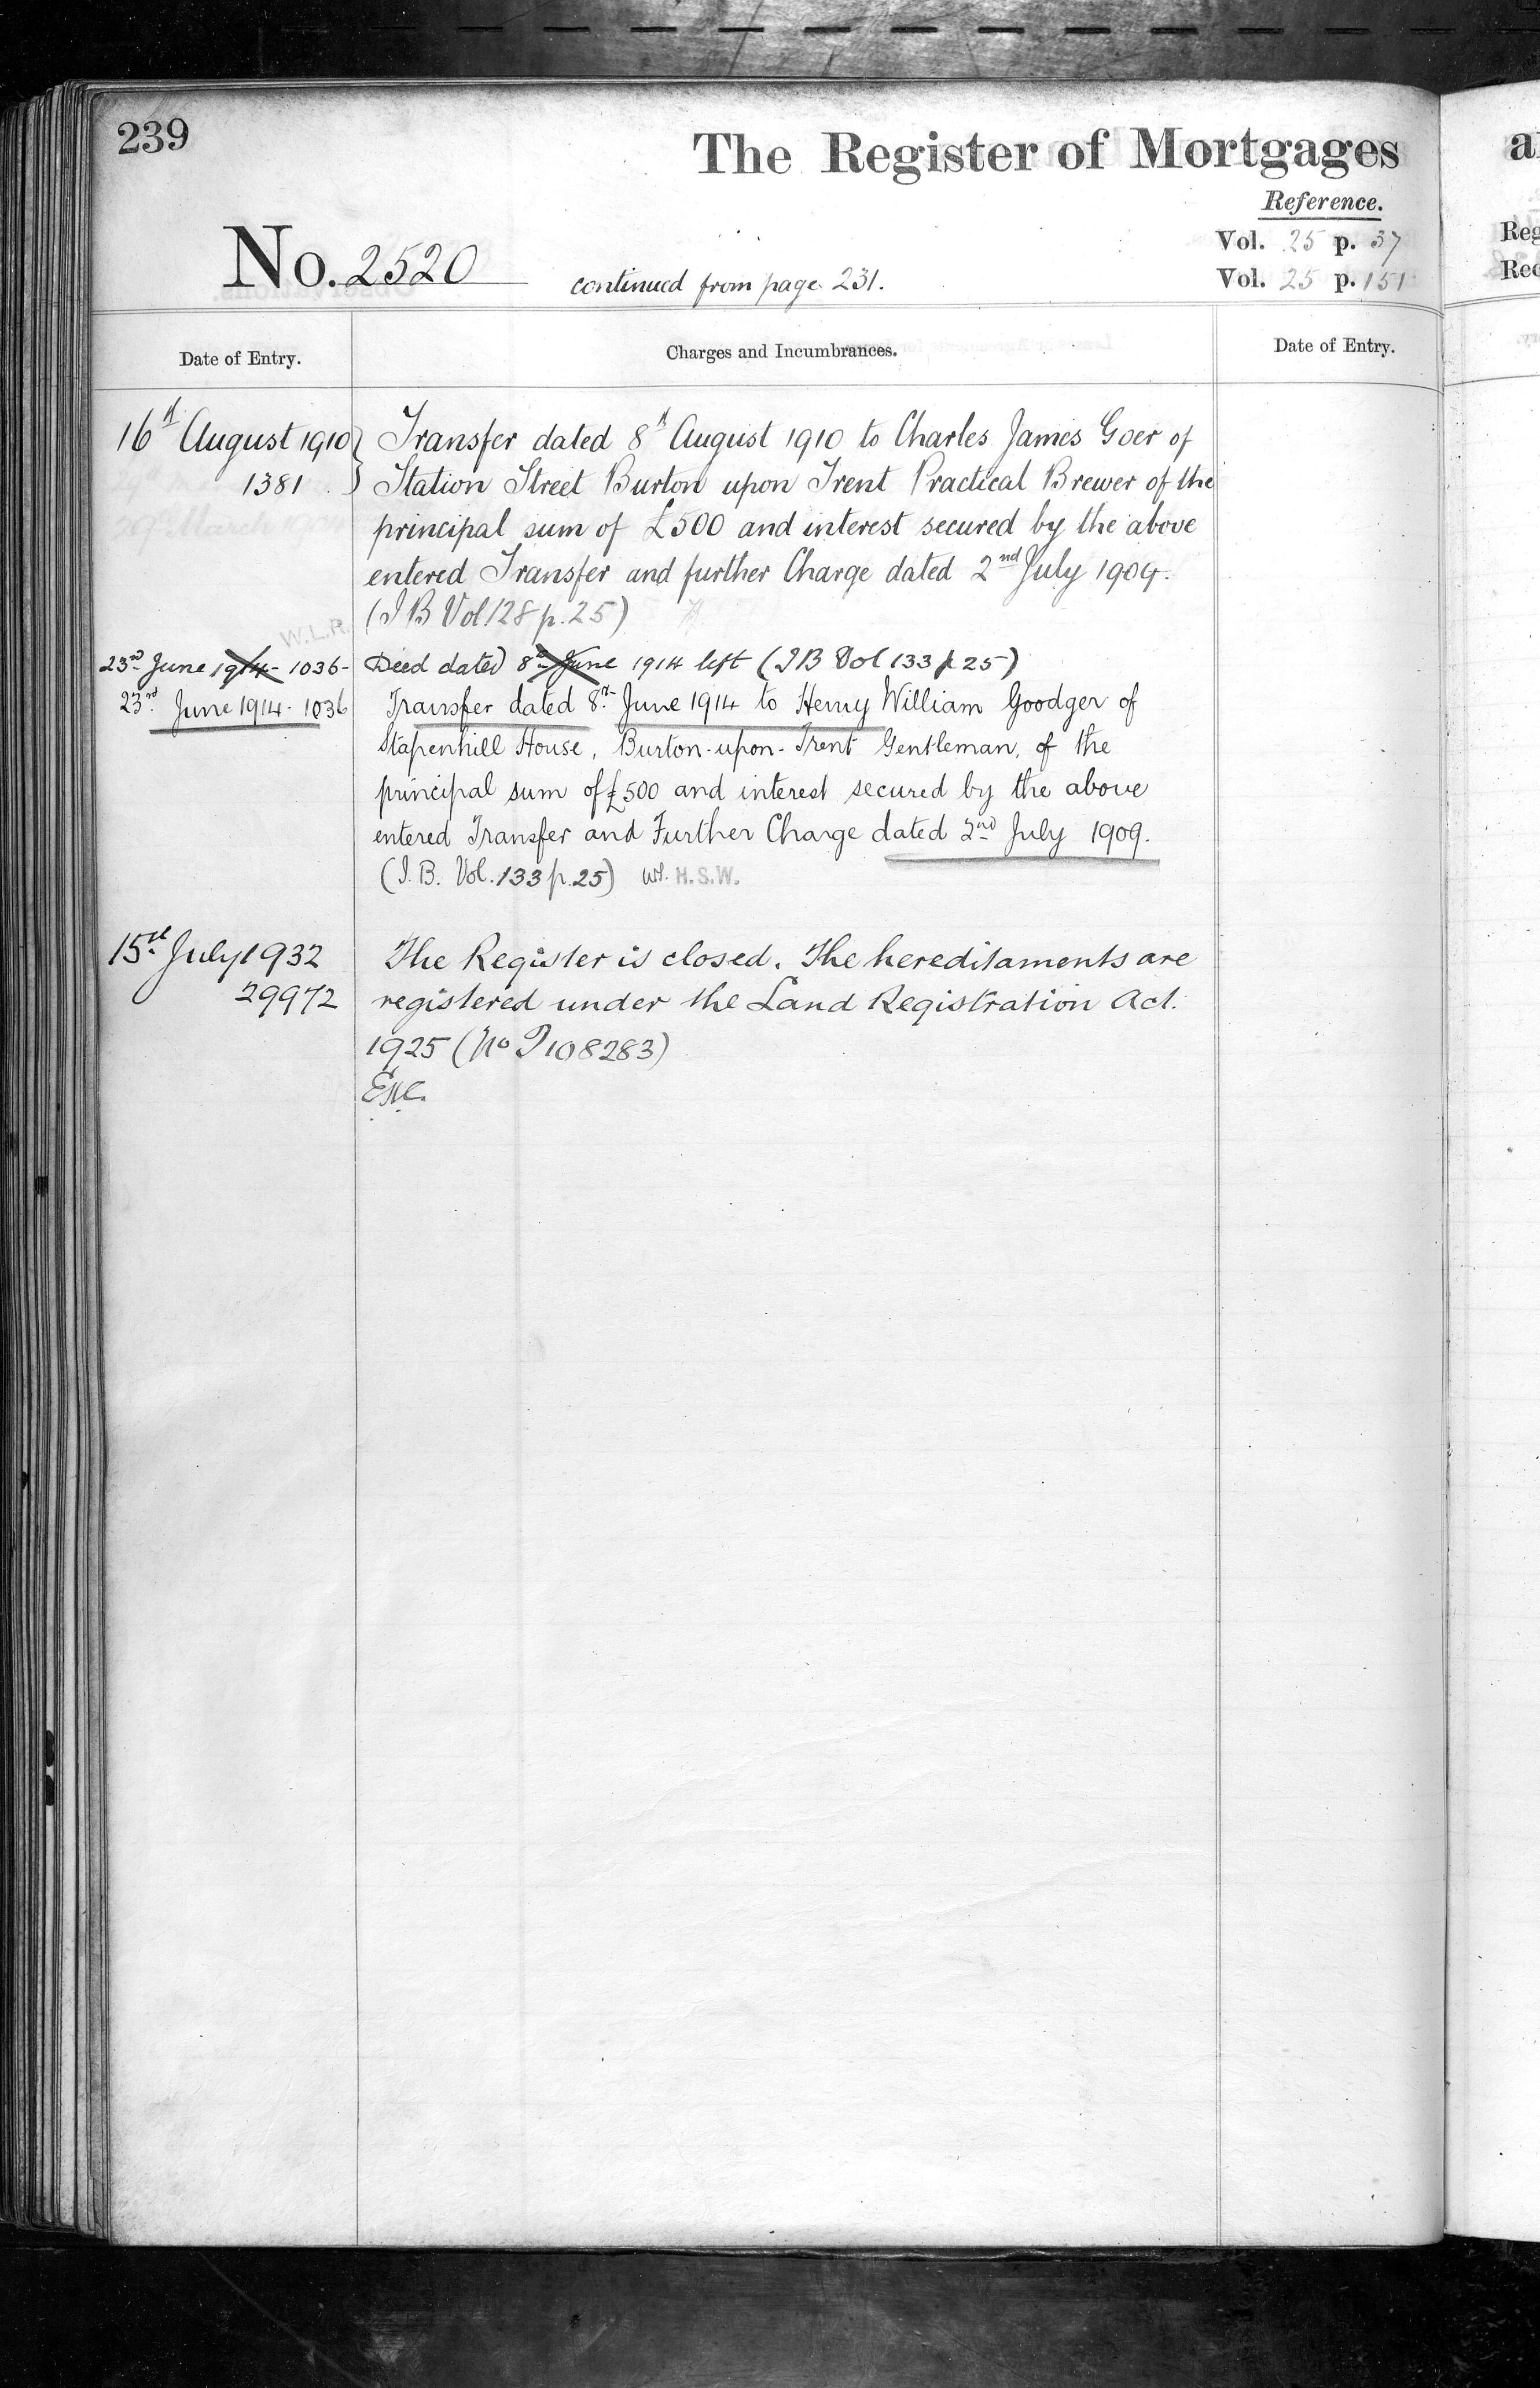 239
The Register of Mortgages
Reference.
No. 2520 continued from page 231.
Vol. 25 p. 37
Vol. 25 p. 151
Date of Entry.
Charges and Incumbrances.
Date of Entry.
16th August 1910
1381
Transfer dated 8th August 1910 to Charles James Goer of
Station Street Burton upon Trent Practical Brewer of the
principal sum of £500 and interest secured by the above
entered Transfer and further Charge dated 2nd July 1909.
(I B Vol. 128 p. 25)
W.L.R.
23rd June 1914 - 1036 -
Deed dated 8th June 1914 left (IB Vol 133 p 25)
23rd June 1914 - 1036
Transfer dated 8th June 1914 to Henry William Goodger of
Stapenhill House, Burton-upon-Trent Gentleman, of the
principal sum of £500 and interest secured by the above
entered Transfer and Further Charge dated 2nd July 1909.
(I. B. Vol. 133 p. 25) H.S.W.
15st July 1932
29972
The Register is closed. The hereditaments are
registered under the Land Registration Act.
1925 (No P108283)
a
Reg